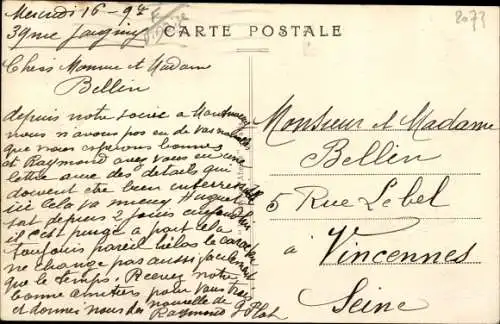 Mercredi 16-9h
39 rue
CARTE POSTALE
2073
Chers Monsieur et Madame
Bellin
depuis notre soirée a
nous n'avons pas eu de vos nouvelles
que nous espérons bonnes
et Raymond avez vous eu une
lettre avec des détails qui
doivent être bien intéressants
ici cela va
fait depuis 2 jours aujourd'hui
il est purgé a part cela
toujours pareil hélas le caractère
ne change pas aussi
que le temps. Recevez notre
bonne amitiés pour vous trois
et donnez nous des nouvelles de
Raymond
Plat
Monsieur et Madame
Bellin
5 Rue Lebel
à Vincennes
Seine